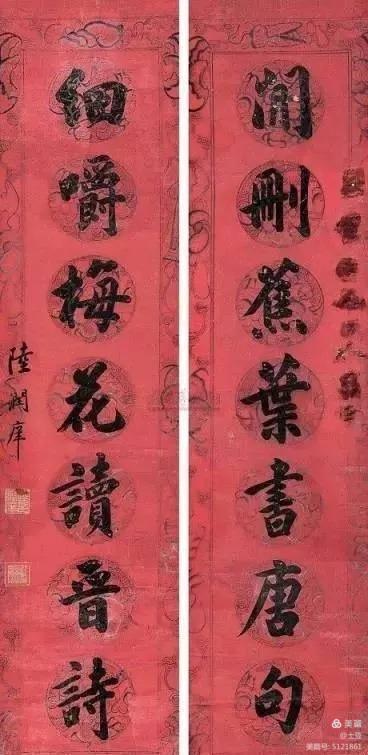 閒刪蕉葉書唐句
細嚼梅花讀晉詩
陸潤庠
美篇
美篇号: 5121861